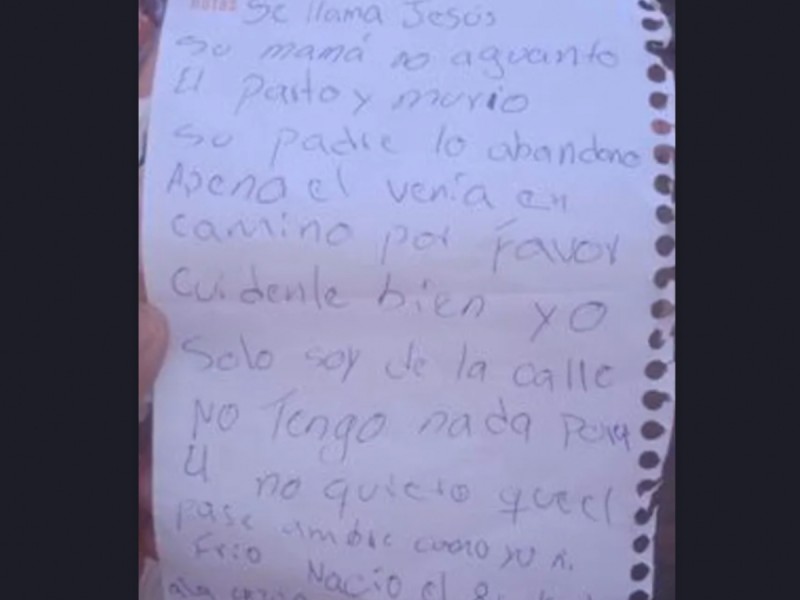 NOTAS
Se llama Jesús
Su mamá no aguanto
El Parto y murio
Su padre lo abandono
Apena el venia en
camino por favor
Cuidenle bien yo
Solo soy de la calle
NO Tengo nada para
El no quiero que el
pase ambre como yo n.
Frio Nacio el 8